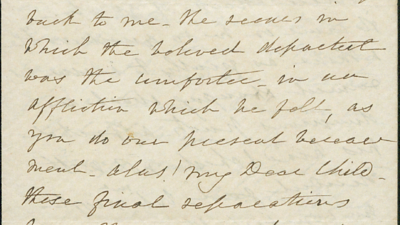 back to me - the scenes in
which the beloved departed
was the comforter - in an
affliction which he felt, as
you do our present bereave
ment - alas! my Dear Child -
these final separations